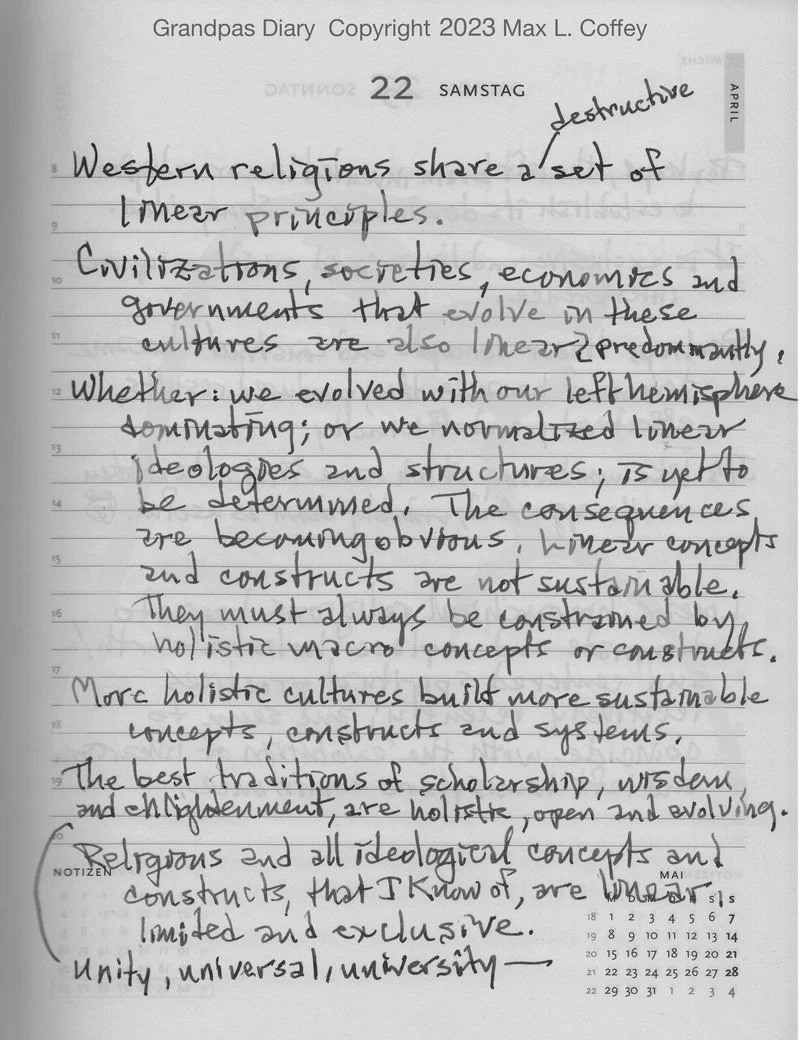 Grandpas Diary Copyright 2023 Max L. Coffey
22 SAMSTAG
APRIL
destructive
8 Western religions share a set of
linear principles.
9
Civilizations, societies, economics and
10
governments that evolve in these
11
cultures are also linear predominantly.
12 Whether: we evolved with our left hemisphere
dominating; or we normalized linear
13
ideologies and structures; is yet to
14 be determined. The consequences
are becoming obvious. Linear concepts
15
and constructs are not sustainable.
16 They must always be constrained by
holistic macro concepts or constructs.
17
More holistic cultures build more sustainable
18
concepts, constructs and systems.
19 The best traditions of scholarship, wisdom,
and enlightenment, are holistic, open and evolving.
20
Religious and all ideological concepts and
NOTIZEN
MAI
constructs, that I know of, are linear,
S S
18 1 2 3 4 5 6 7
limited and exclusive.
19 8 9 10 11 12 13 14
20 15 16 17 18 19 20 21
Unity, universal, university —
21 22 23 24 25 26 27 28
22 29 30 31 1 2 3 4